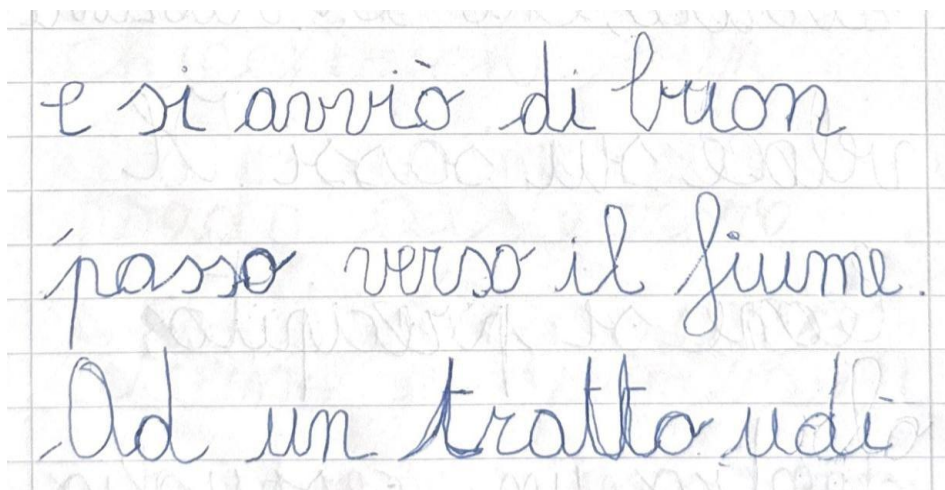 e si avviò di buon
passo verso il fiume.
Ad un tratto udì